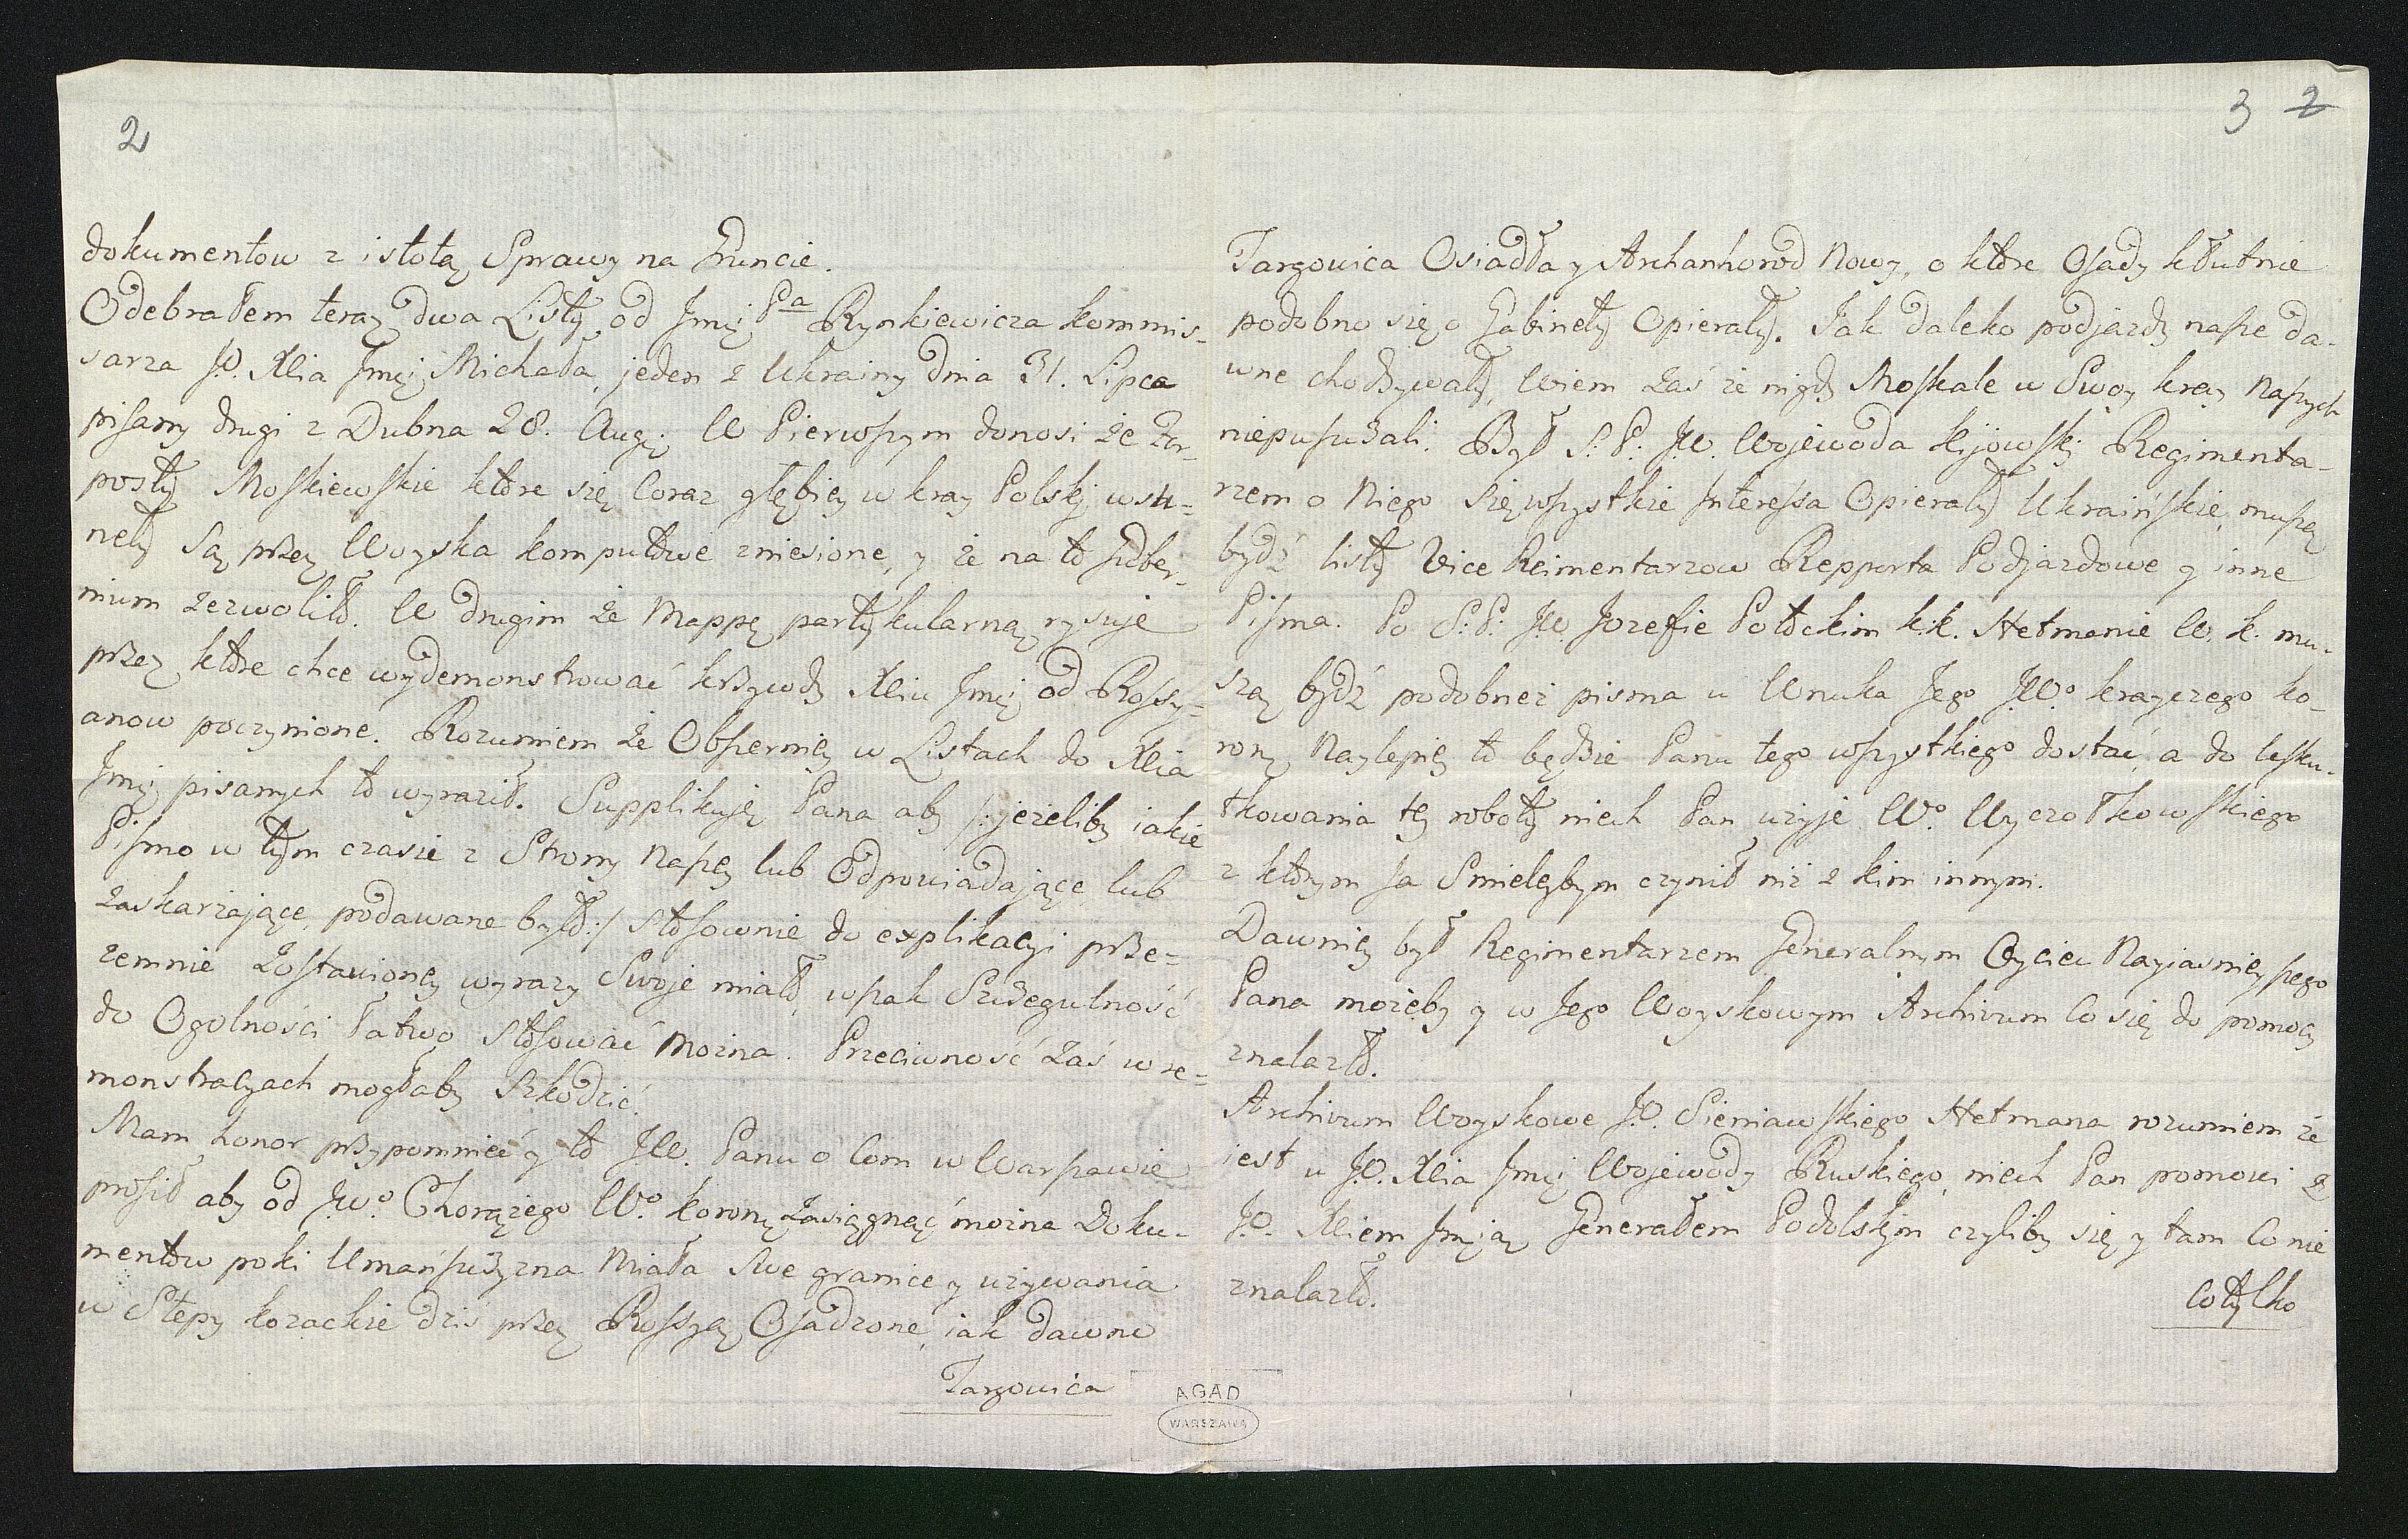 2
dokumentow z istotą Sprawy na Gruncie.
Odebrałem teraz dwa Listy od Jmci Pa Rynkiewicza kommis-
sarza JO. Xcia Jmci Michała, jeden z Ukrainy dnia 31. Lipca
pisany drugi z Dubna 28. Augi. W Pierwszym donosi że For-
posty Moskiewskie które się Coraz głębiey w kray Polski wsu=
neły Są przez Woyska komputowe zniesione, y że na to Guber-
nium zezwoliło. W drugim że Mappę partykularną rysuje
przez które chce wydemonstrować krzywdy Xciu Jmci od Rossy=
anow poczynione. Rozumiem że Obszerniey w Listach do Xcia
Jmci pisanych to wyraził. Supplikuję Pana aby /: jeżeliby iakie
Pismo w tym czasie z Strony Naszey lub Odpowiadające lub
zaskarżające, podawane było :/ stosownie do explikacyi prze=
zemnie Zostawioney wyrazy Swoje miało, wszak Szczegulność
do Ogolności łatwo stosować Można. Przeciwność zaś w re=
monstracyach mogłaby szkodzić.
Mam honor przypomnieć y to JW. Panu o Com w Warszawie
prosił aby od JWo. Chorążego Wo. korony zasięgnąć można Doku-
mentow poki Umańszczyzna Miała Swe granice y używania
w Stepy kozackie dziś przez Rossyą Osadzone, iak dawno
Targowica
3 2
Targowica Osiadła y Archanhorod Nowy, o które Osady kłutnie
podobno się o Gabinety Opierały. Jak daleko podjazdy nasze da-
wne chodzywały, Wiem zaś że nigdy Moskale w Swoy kray Naszych
niepuszczali. Był S. P. JW. Wojewoda kijowski Regimenta-
rzem o Niego się wszystkie Interessa Opierały Ukraińskie, muszą
bydź listy Vice Reimentarzow Repporta Podjazdowe y inne
Pisma. Po S: P: JW Jozefie Potockim k.k. Hetmanie W. k. mu-
szą bydź podobneż pisma u Wnuka Jego JWo. krayczego ko-
rony Naylepiey to będzie Panu tego wszystkiego dostać, a do usku-
tkowania tey roboty niech Pan użyje Wo. Wyczołkowskiego
z którym Ja Smieleybym czynił niż z kim innym.
Dawniey był Regimentarzem Generalnym Oyciec Nayiasnieyszego
Pana możeby y w Jego Woyskowym Archivum Co się do pomocy
znalazło.
Archivum Woyskowe JO. Sieniawskiego Hetmana rozumiem że
iest u JO. Xcia Jmci Wojewody Ruskiego, niech Pan pomowi z
JO. Xciem Jmcią Generałem Podolskim czyliby się y tam Co nie
znalazło.
Cotylko
AGAD
WARSZAWA